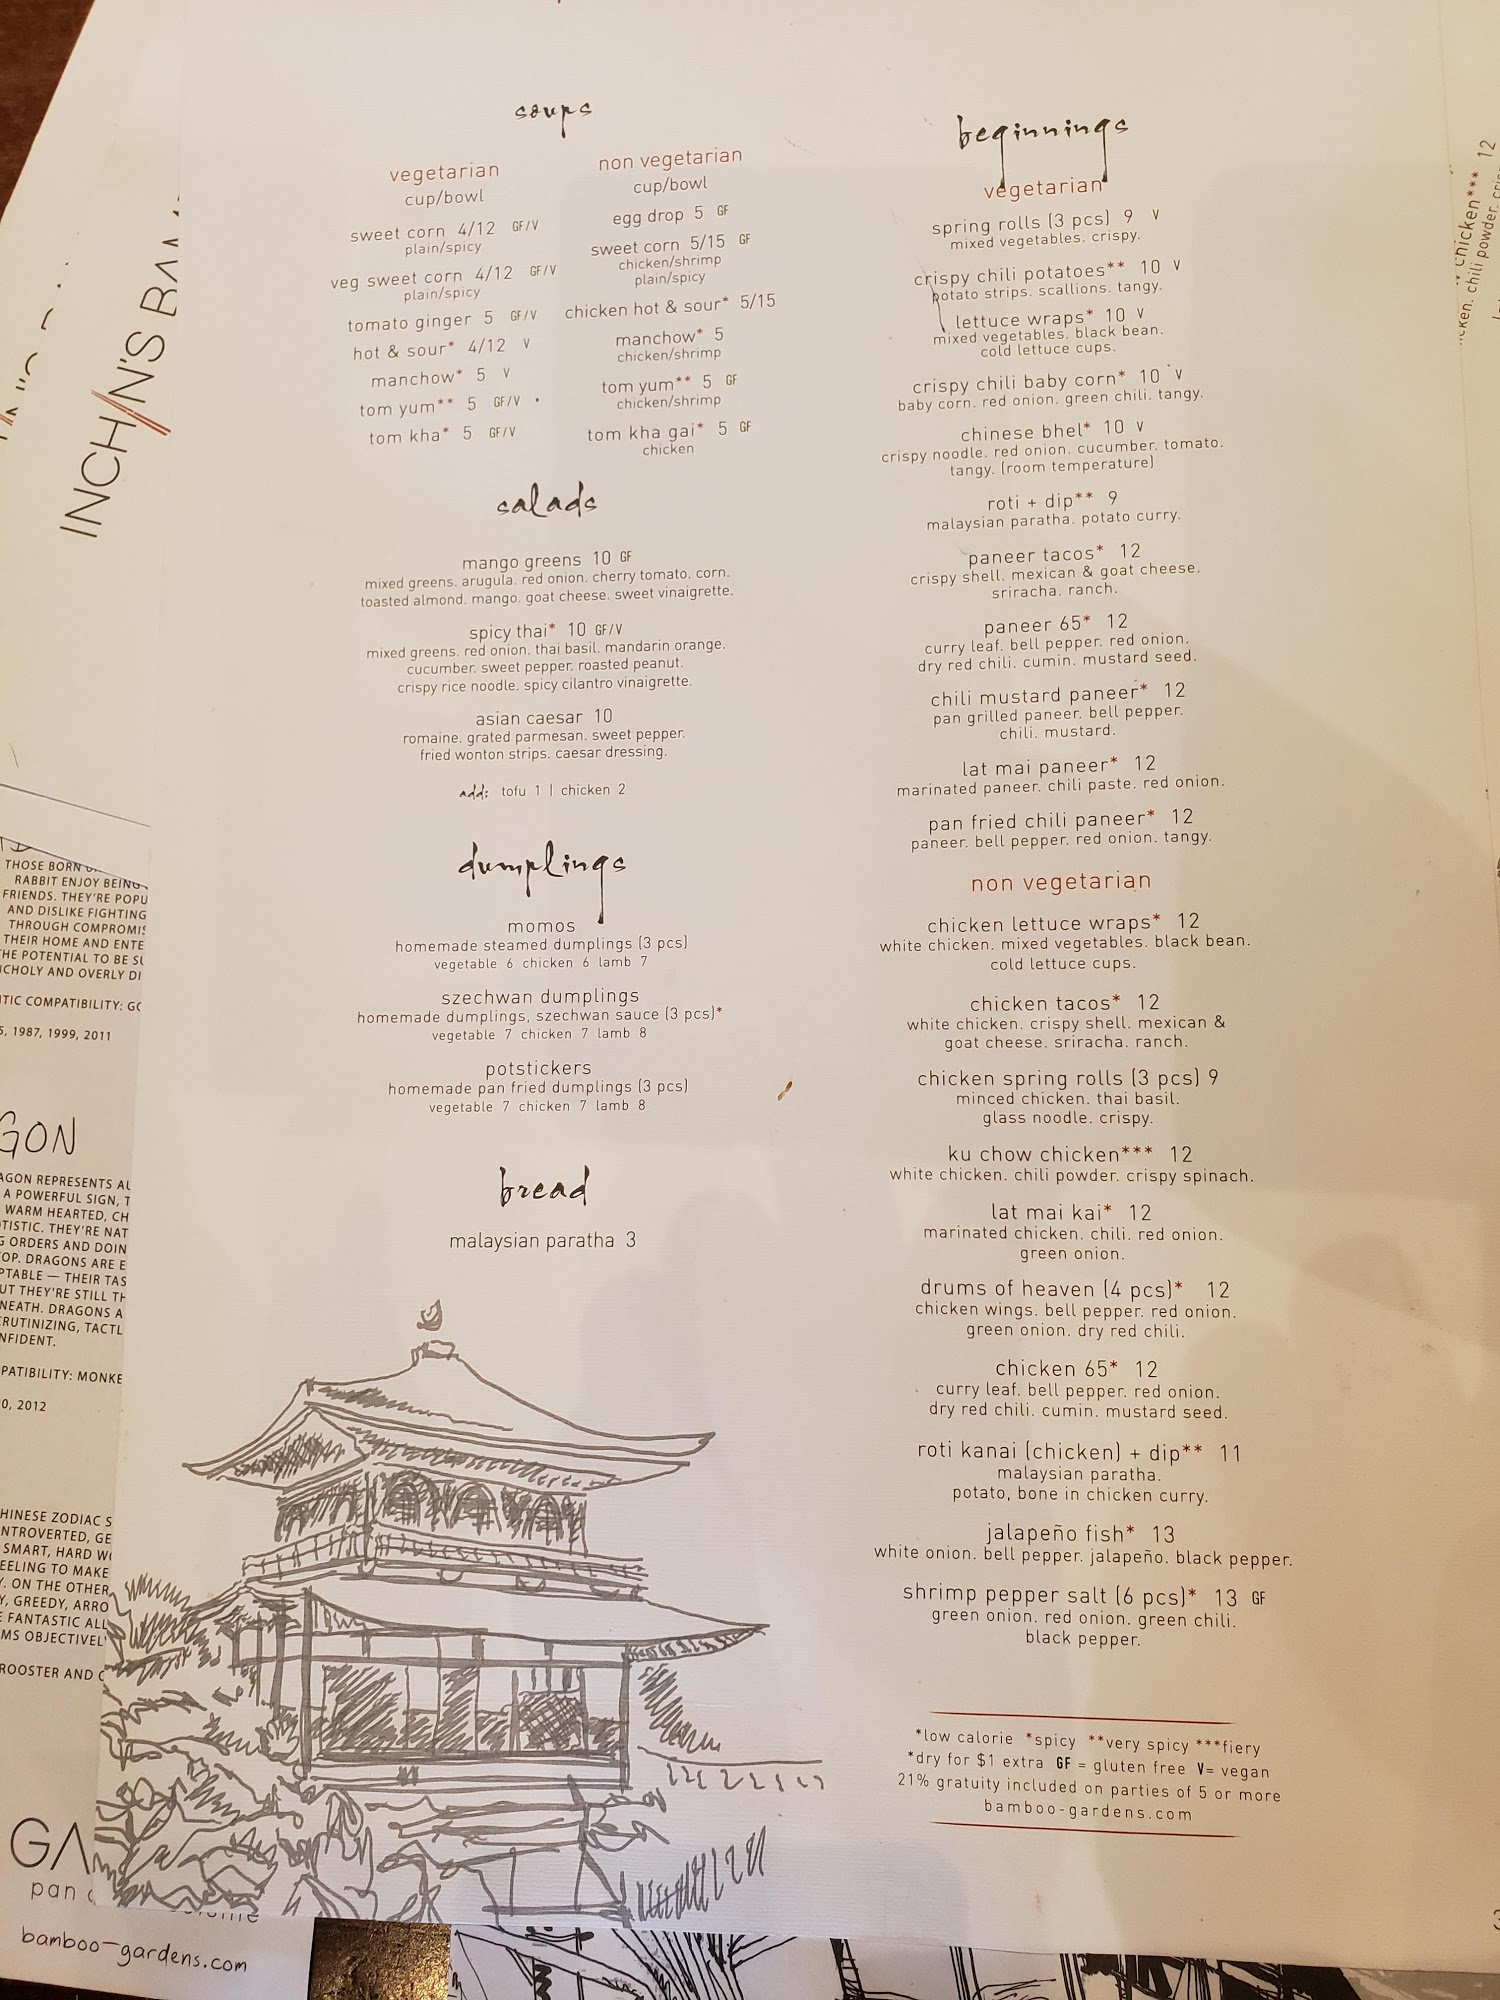 soups
vegetarian
cup/bowl
sweet corn 4/12 GF/V
plain/spicy
veg sweet corn 4/12 GF/V
plain/spicy
tomato ginger 5 GF/V
hot & sour* 4/12 V
manchow* 5 V
tom yum** 5 GF/V
tom kha* 5 GF/V
non vegetarian
cup/bowl
egg drop 5 GF
sweet corn 5/15 GF
chicken/shrimp
plain/spicy
chicken hot & sour* 5/15
manchow* 5
chicken/shrimp
tom yum** 5 GF
chicken/shrimp
tom kha gai* 5 GF
chicken
salads
mango greens 10 GF
mixed greens. arugula. red onion. cherry tomato. corn.
toasted almond. mango. goat cheese. sweet vinaigrette.
spicy thai* 10 GF/V
mixed greens. red onion. thai basil. mandarin orange.
cucumber. sweet pepper. roasted peanut.
crispy rice noodle. spicy cilantro vinaigrette.
asian caesar 10
romaine. grated parmesan. sweet pepper.
fried wonton strips. caesar dressing.
add: tofu 1 | chicken 2
dumplings
momos
homemade steamed dumplings (3 pcs)
vegetable 6 chicken 6 lamb 7
szechwan dumplings
homemade dumplings, szechwan sauce (3 pcs)*
vegetable 7 chicken 7 lamb 8
potstickers
homemade pan fried dumplings (3 pcs)
vegetable 7 chicken 7 lamb 8
bread
malaysian paratha 3
beginnings
vegetarian
spring rolls (3 pcs) 9 V
mixed vegetables. crispy.
crispy chili potatoes** 10 V
potato strips. scallions. tangy.
lettuce wraps* 10 V
mixed vegetables. black bean.
cold lettuce cups.
crispy chili baby corn* 10 V
baby corn. red onion. green chili. tangy.
chinese bhel* 10 V
crispy noodle. red onion. cucumber. tomato.
tangy. (room temperature)
roti + dip** 9
malaysian paratha. potato curry.
paneer tacos* 12
crispy shell. mexican & goat cheese.
sriracha. ranch.
paneer 65* 12
curry leaf. bell pepper. red onion.
dry red chili. cumin. mustard seed.
chili mustard paneer* 12
pan grilled paneer. bell pepper.
chili. mustard.
lat mai paneer* 12
marinated paneer. chili paste. red onion.
pan fried chili paneer* 12
paneer. bell pepper. red onion. tangy.
non vegetarian
chicken lettuce wraps* 12
white chicken. mixed vegetables. black bean.
cold lettuce cups.
chicken tacos* 12
white chicken. crispy shell. mexican &
goat cheese. sriracha. ranch.
chicken spring rolls (3 pcs) 9
minced chicken. thai basil.
glass noodle. crispy.
ku chow chicken*** 12
white chicken. chili powder. crispy spinach.
lat mai kai* 12
marinated chicken. chili. red onion.
green onion.
drums of heaven (4 pcs)* 12
chicken wings. bell pepper. red onion.
green onion. dry red chili.
chicken 65* 12
curry leaf. bell pepper. red onion.
dry red chili. cumin. mustard seed.
roti kanai (chicken) + dip** 11
malaysian paratha.
potato, bone in chicken curry.
jalapeño fish* 13
white onion. bell pepper. jalapeño. black pepper.
shrimp pepper salt (6 pcs)* 13 GF
green onion. red onion. green chili.
black pepper.
*low calorie *spicy **very spicy ***fiery
*dry for $1 extra GF = gluten free V= vegan
21% gratuity included on parties of 5 or more
bamboo-gardens.com
INCHIN'S
THOSE BORN
RABBIT ENJOY BEING
FRIENDS. THEY'RE
AND DISLIKE FIGHTING
THROUGH
THEIR HOME AND
THE POTENTIAL TO BE
AND OVERLY
COMPATIBILITY:
1987, 1999, 2011
REPRESENTS
A POWERFUL SIGN,
WARM HEARTED,
THEY'RE
ORDERS AND
DRAGONS ARE
— THEIR
THEY'RE STILL
DRAGONS
2012
CHINESE ZODIAC
SMART, HARD
TO MAKE
ON THE OTHER
GREEDY,
FANTASTIC
ROOSTER AND
pan
bamboo-gardens.com
chicken*** 12
chili powder.